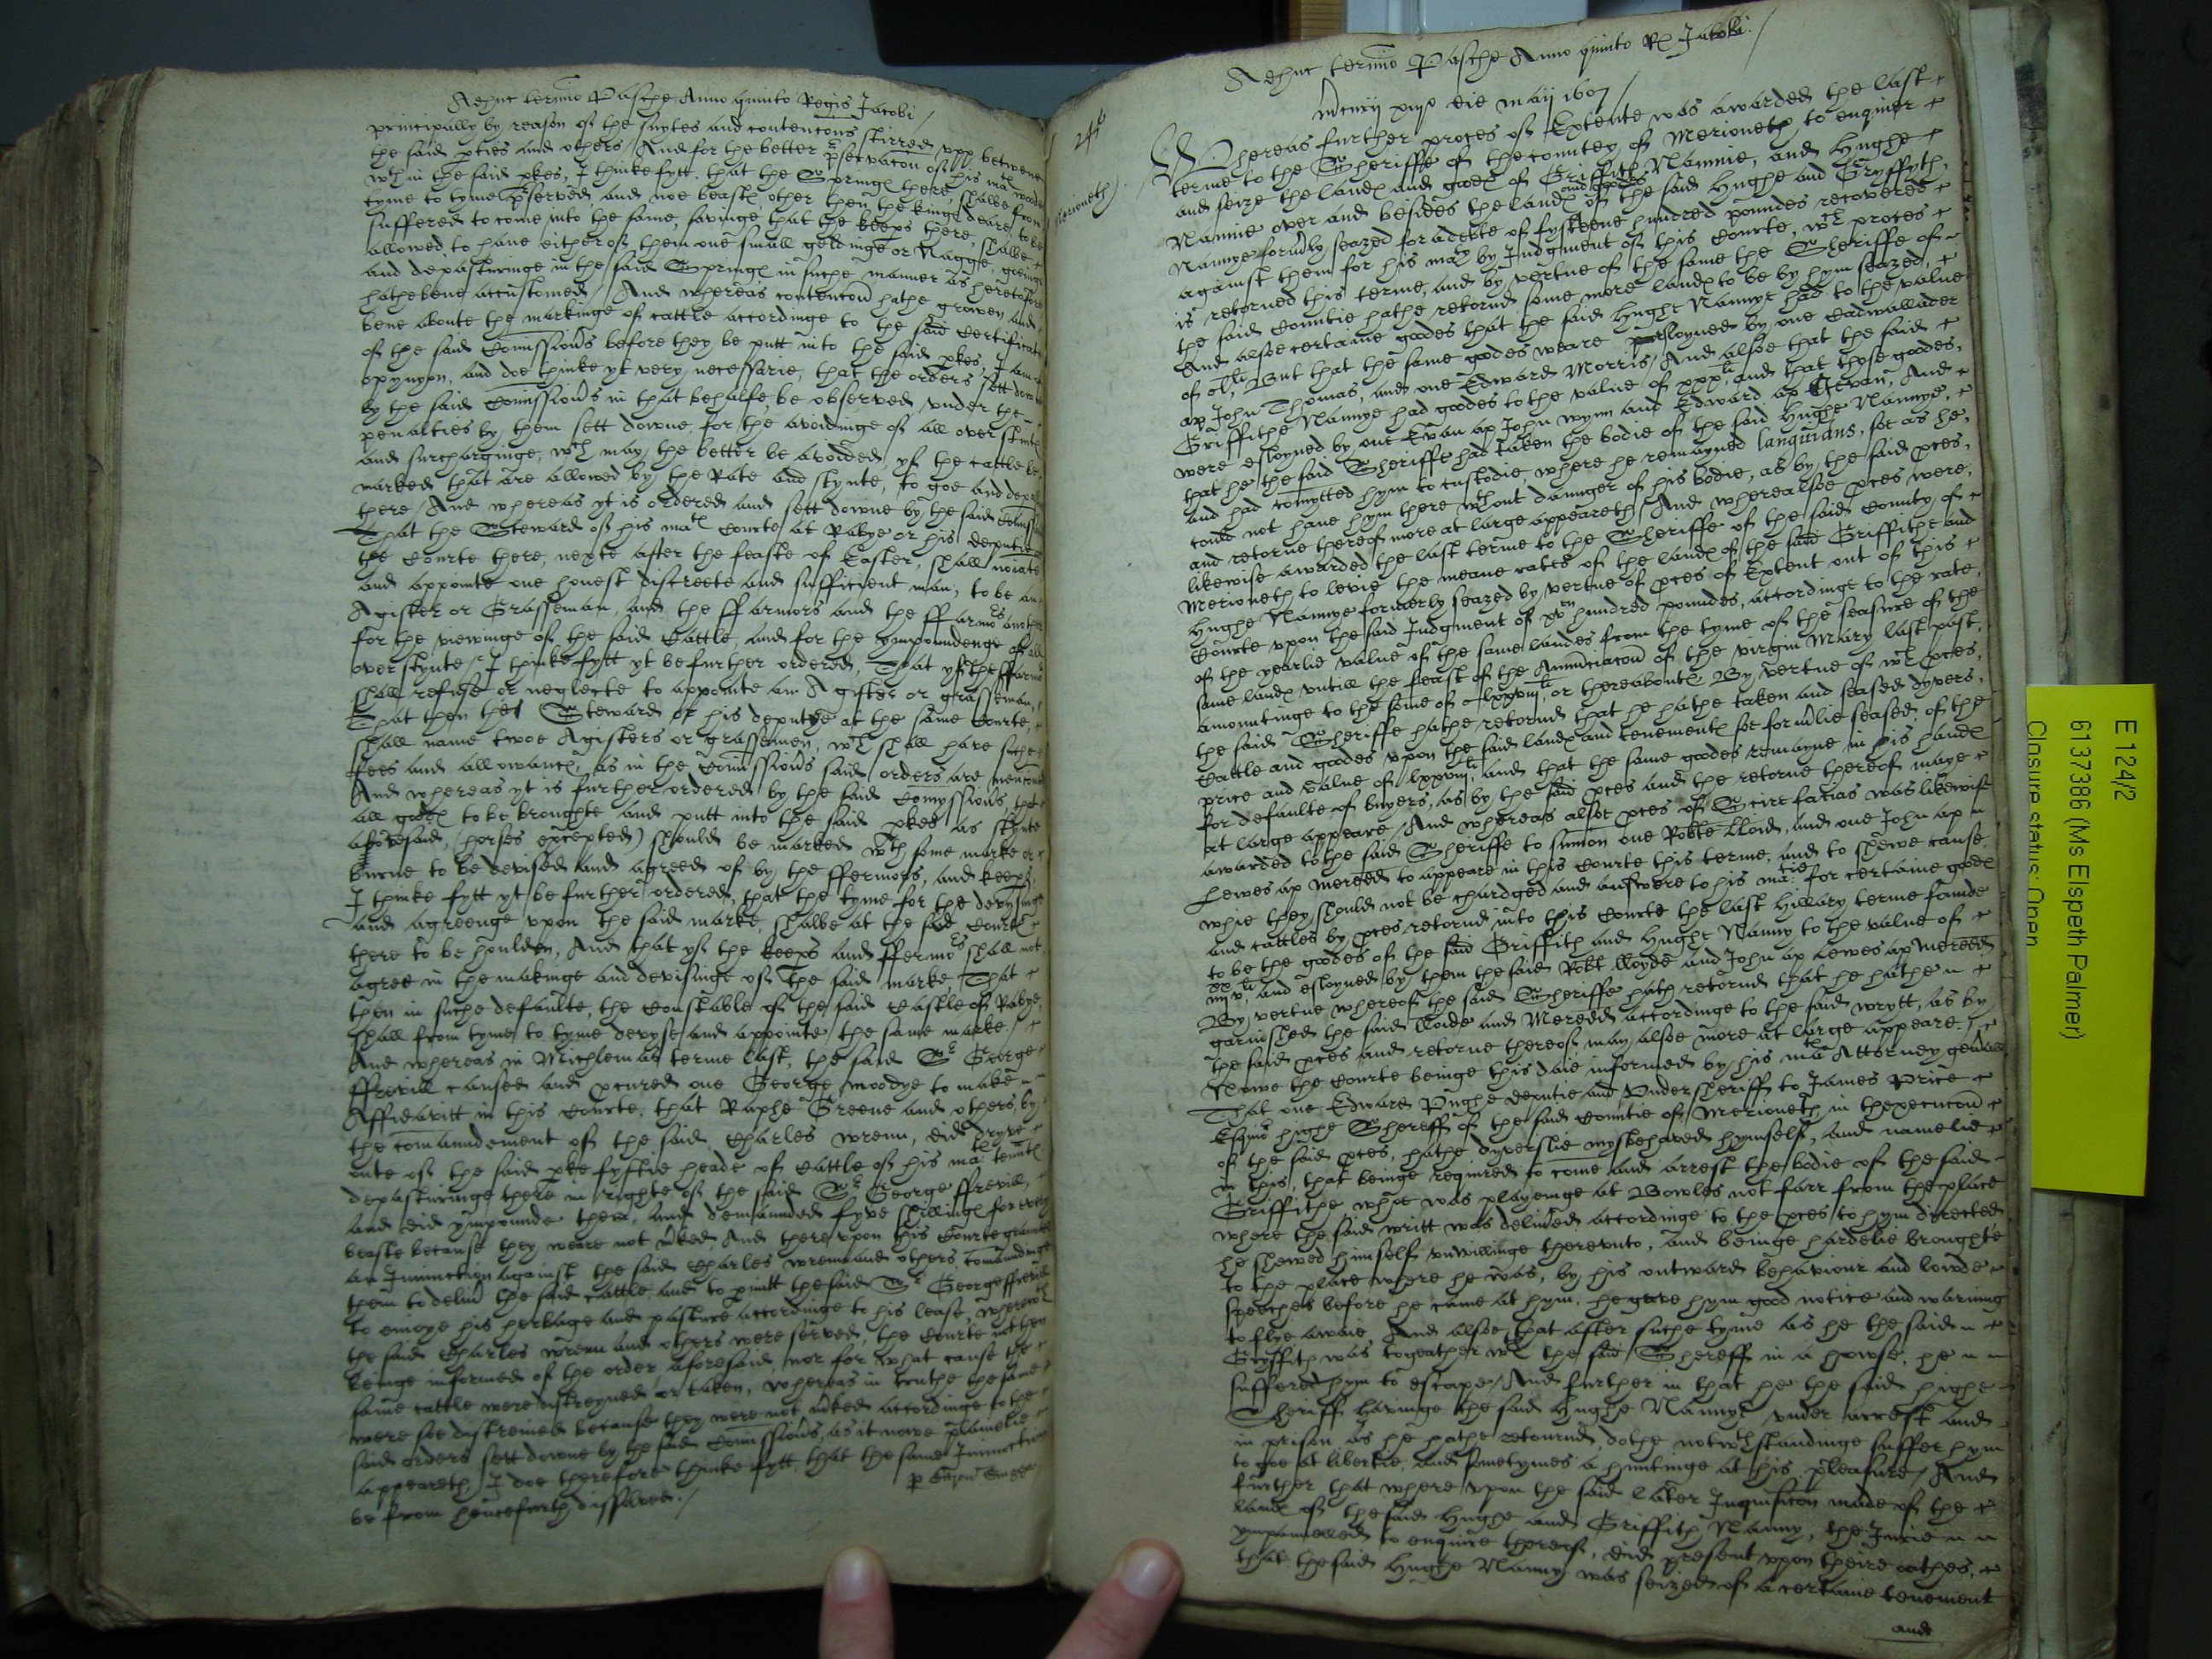 Adhuc termīo Pasche Anno quinto Regis Jacobi /
principally by reason of the suytes and contencõns stirred upp betwene
the said pties and others / And for the better pservacõn of his maᵗˢ woods
wᵗʰin the said pkes, I thinke fytt, that the Springe there, shalbe from
tyme to tyme pserved, and noe beaste other then the kings deare, to be
suffered to come into the same, savinge that the keeps there, shalbe
allowed to have either of them one small geldinge or Nagge, goeinge
and depasturinge in the said Springs in suche manner as heretofore
hathe bene accustomed / And whereas contencõn hathe growen and
bene aboute the markinge of cattle accordinge to the said Certificate
of the said Comissionrs before they be putt into the said pkes, I am of
opynyon, and doe thinke yt very necessarie, that the orders sett downe
by the said Comissionrs in that behalfe, be observed, under the
penalties by them sett downe, for the avoidinge of all over stinte
and surcharginge, wᶜʰ may the better be avoided, yf the cattle be
marked that are allowed by the Rate and stynte, to goe and depasture
there / And whereas yt is ordered and sett downe by the said Comissionrs
That the Steward of his maᵗˢ Courte at Rabye or his deputie
the Courte there, nexte after the feaste of Easter, shall noīate
and appointe one honest discreete and sufficient man, to be an
Agister or Grasseman, and the ffarmors and the ffarmors another
for the viewinge of the said Cattle, and for the ympoundenge of all
overstynte / I thinke fytt yt be further ordered, That yf the ffarmors
shall refuse or neglecte to appointe an Agister or grasseman,
That then the Steward or his deputye at the same Courte,
shall name twoe Agisters or grassemen, wᶜʰ shall have suche
fees and allowance, as in the Comissionrs said orders are menconed
And whereas yt is further ordered by the said Comyssionrs, that
all goods to be broughte and putt into the said pkes as stynte
aforesaid, (horses excepted) should be marked wᵗʰ some marke or
burne to be devised and agreed of by the ffermors, and keeps,
I thinke fytt yt be further ordered, that the tyme for the devysinge
and agreenge upon the said marke, shalbe at the said Courte
there to be houlden, And that yf the keeps and ffermors shall not
agree in the makinge and devisinge of the said marke, That
then in suche defaulte, the Constable of the said Castle of Rabye,
shall from tyme to tyme devyse and appointe the same marke /
And whereas in Michlemas terme last, the said Sʳ George
ffrevill caused and pcured one George Moodye to make
Affidavitt in this Courte, that Raphe Greene and others, by
the comaundement of the said Charles wrenn, did dryve
oute of the said pke fystie heade of Cattle of his maᵗˢ tenᵗˢ
depasturinge there in righte of the said Sʳ George ffrevill,
and did ympounde them, and demaunded fyve shillings for every
beaste because they weare not mked, And thereupon this Courte graunted
an Iniunction against the said Charles wrenn and others, comaundinge
them to deliv̄ the said cattle, and to pmitt the said Sʳ George ffrevill
to enioye his herbage and pasture accordinge to his lease, wherewᵗʰ
the said Charles wrenn and others were served, the Courte not then
beinge informed of the order aforesaid, nor for what cause the
same cattle were distreyned or taken, whereas in truthe the same
were soe distreined because they were not mked accordinge to the
said orders sett downe by the said Comissionrs, as it nowe plainelie
appeareth, I doe therefore thinke fytt, that the same Iniunction
be from henceforth dissolved. /
Adhuc termīo Pasche Anno quinto Rx Jacobi. /
Mercurij xiijº die Maij 1607 /
Merioneth
Whereas further proces of Extente was awarded the last
terme to the Sheriffe of the countey of Merioneth, to enquier
and seize the lands and goods of Griffith Nannie, and Hughe
Nannie over and besides the lands and goods of the said Hughe and Gryffyth,
Nannye form̄ly seazed for a debte of fysteene hundred poundes recovered
against them for his maᵗʸ by Judgment of this Courte, wᶜʰ proces
is retorned this terme, and by vertue of the same the Sheriffe of
the said Countie hathe retornd some more lands to be by hym seazed,
And alsoe certaine goodes that the said Hughe Nannye had to the value
of xlˡⁱ, But that the same goodes weare esloyned by one Cadwallader
ap John Thomas, and one Edward Morris / And alsoe that the said
Griffithe Nannye had goodes to the value of xxxˡⁱ, and that those goodes,
were esloyned by one Evan ap John wynn and Edward ap Evan, And
that he the said Sheriffe had taken the bodie of the said Hughe Nannye,
and had comytted hym to custodie, where he remayned languidus, soe as he,
could not have hym there wᵗʰout daunger of his bodie, as by the said pces,
and retorne thereof more at large appeareth / And where alsoe pces were,
likewise awarded the last terme to the Sheriffe of the said County of
Merioneth to levie the meane rates of the lands of the said Griffithe and
Hughe Nannye formerly seazed by vertue of pces of Extent out of this
Courte upon the said Judgment of xvᵉⁿ hundred poundes, accordinge to the rate,
of the yearlie value of the same landes from the tyme of the seasure of the
same lands untill the feast of the Annunciacõn of the virgin Mary last past,
amountinge to the some of lxxviijˡⁱ or thereaboutes By vertue of wᶜʰ pces,
the said Sheriffe hathe retornd that he hathe taken and seased dyvers,
Cattle and goodes upon the said lands and tenements soe form̄lie seased, of the
price and value of lxxviijˡⁱ, and that the same goodes remayne in his hands
for defaulte of buyers, as by the said pces and the retorne thereof maye
at large appeare / And whereas alsoe pces of Scire facias was likewise
awarded to the said Sheriffe to sumon one Robte Lloid, and one John ap
Lewes ap Mereed to appeare in this Courte this terme, and to shewe cause,
whie they should not be chardged and answere to his maᵗⁱᵉ for certaine goods
and cattles by pces retornd into this Courte the last Hillary terme founde
to be the goodes of the said Griffith and Hughe Nanny to the value of
iiijˣˣvˡⁱ, and esloyned by them the said Robt lloyde and John ap Lewes ap Mereed
By vertue whereof the said Sheriffe hath retornd that he hathe
garnished the said lloide and Meredd accordinge to the said wrytt, as by
the said pces and retorne thereof may alsoe more at large appeare. /
Nowe the Courte beinge this daie informed by his maᵗˢ Attorney gen̄all
That one Edward Pughe deputie and Undersheriff to James Price
Esquire highe Shereff of the said Countie of Merioneth in thexecucõn
of the said pces, hathe dyverslie mysbehaved hymself, and namelie
in this, that beinge required to come and arrest the bodie of the said
Griffithe, whoe was playeinge at Bowles not farr from the place
where the said writt was deliv̄ed accordinge to the pces to hym directed
he shewed himself unwillinge thereunto, and beinge hardelie broughte
to the place where he was, by his outward behaviour and lowde
speeches before he came at hym, he gave hym good notice and warning
to flye awaie, And alsoe that after suche tyme as he the said
Gryffith was togeather wᵗʰ the said Shereff in a howse, he
suffered hym to escape / And further in that he the said highe
Sheriff havinge the said Hughe Nannye under arrest and
in prison as he hathe retournd, dothe notwᵗʰstandinge suffer hym
to goe at libertie, and sometymes a huntinge at his pleasure / And
further that where upon the said later Inquisicõn made of the
lands of the said Hughe and Griffith Nanny, the Jurie
ympanelled to enquire thereof, did present upon theire othes,
that the said Hughe Nanny was seized of a certaine tenement
and
E 124/2
6137386 (Ms Elspeth Palmer)
Closure status: Open